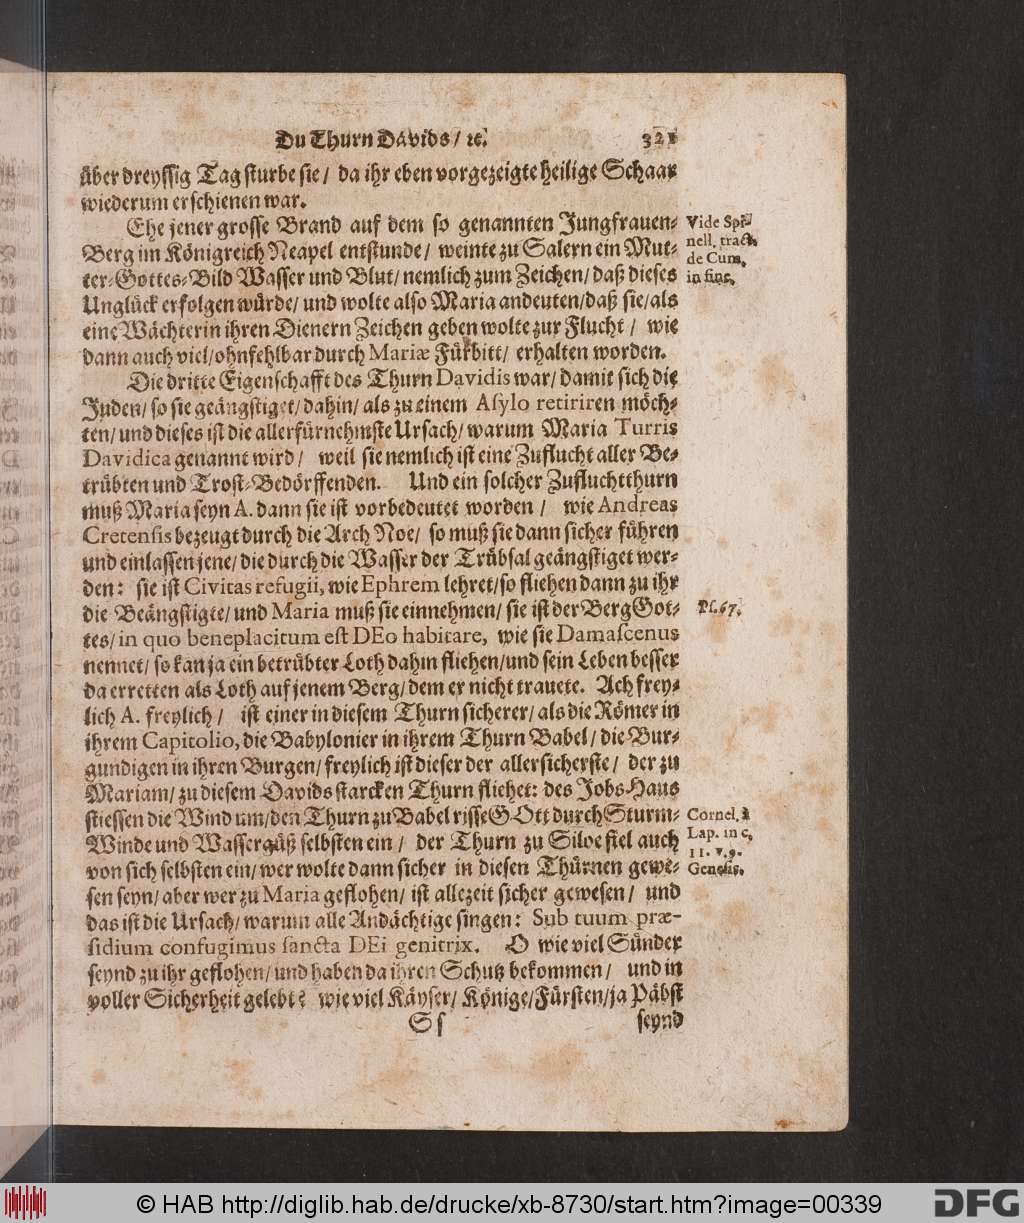 Du Thurn Davids / ⁊c. 321
über dreyssig Tag sturbe sie / da ihr eben vorgezeigte heilige Schaar
wiederum erschienen war.
Ehe jener grosse Brand auf dem so genannten Jungfrauen-
Berg im Königreich Neapel entstunde / weinte zu Salern ein Mut-
ter-Gottes-Bild Wasser und Blut / nemlich zum Zeichen / daß dieses
Unglück erfolgen würde / und wolte also Maria andeuten / daß sie / als
eine Wächterin ihren Dienern Zeichen geben wolte zur Flucht / wie
dann auch viel / ohnfehlbar durch Mariæ Fürbitt / erhalten worden.
Vide Spi-
nell. tract.
de Cum.
in fine.
Die dritte Eigenschafft des Thurn Davidis war / damit sich die
Juden / so sie geängstiget / dahin / als zu einem Asylo retiriren möch-
ten / und dieses ist die allerfürnehmste Ursach / warum Maria Turris
Davidica genannt wird / weil sie nemlich ist eine Zuflucht aller Be-
trübten und Trost-Bedörffenden. Und ein solcher Zufluchtthurn
muß Maria seyn A. dann sie ist vorbedeutet worden / wie Andreas
Cretensis bezeugt durch die Arch Noe / so muß sie dann sicher führen
und einlassen jene / die durch die Wasser der Trübsal geängstiget wer-
den: sie ist Civitas refugii, wie Ephrem lehret / so fliehen dann zu ihr
die Beängstigte / und Maria muß sie einnehmen / sie ist der Berg Got-
tes / in quo beneplacitum est DEo habitare, wie sie Damascenus
Ps. 67.
nennet / so kan ja ein betrübter Loth dahin fliehen / und sein Leben besser
da erretten als Loth auf jenem Berg / dem er nicht trauete. Ach frey-
lich A. freylich / ist einer in diesem Thurn sicherer / als die Römer in
ihrem Capitolio, die Babylonier in ihrem Thurn Babel / die Bur-
gundigen in ihren Burgen / freylich ist dieser der allersicherste / der zu
Mariam / zu diesem Davids starcken Thurn fliehet: des Jobs-Haus
stiessen die Wind um / den Thurn zu Babel risse GOtt durch Sturm-
Winde und Wassergüß selbsten ein / der Thurn zu Siloe fiel auch
von sich selbsten ein / wer wolte dann sicher in diesen Thürnen gewe-
sen seyn / aber wer zu Maria geflohen / ist allezeit sicher gewesen / und
Cornel. à
Lap. in c.
11. v. 9.
Genesis.
das ist die Ursach / warum alle Andächtige singen: Sub tuum præ-
sidium confugimus sancta DEi genitrix. O wie viel Sünder
seynd zu ihr geflohen / und haben da ihren Schutz bekommen / und in
voller Sicherheit gelebt? wie viel Käyser / Könige / Fürsten / ja Päbst
Ss seynd
© HAB http://diglib.hab.de/drucke/xb-8730/start.htm?image=00339
DFG